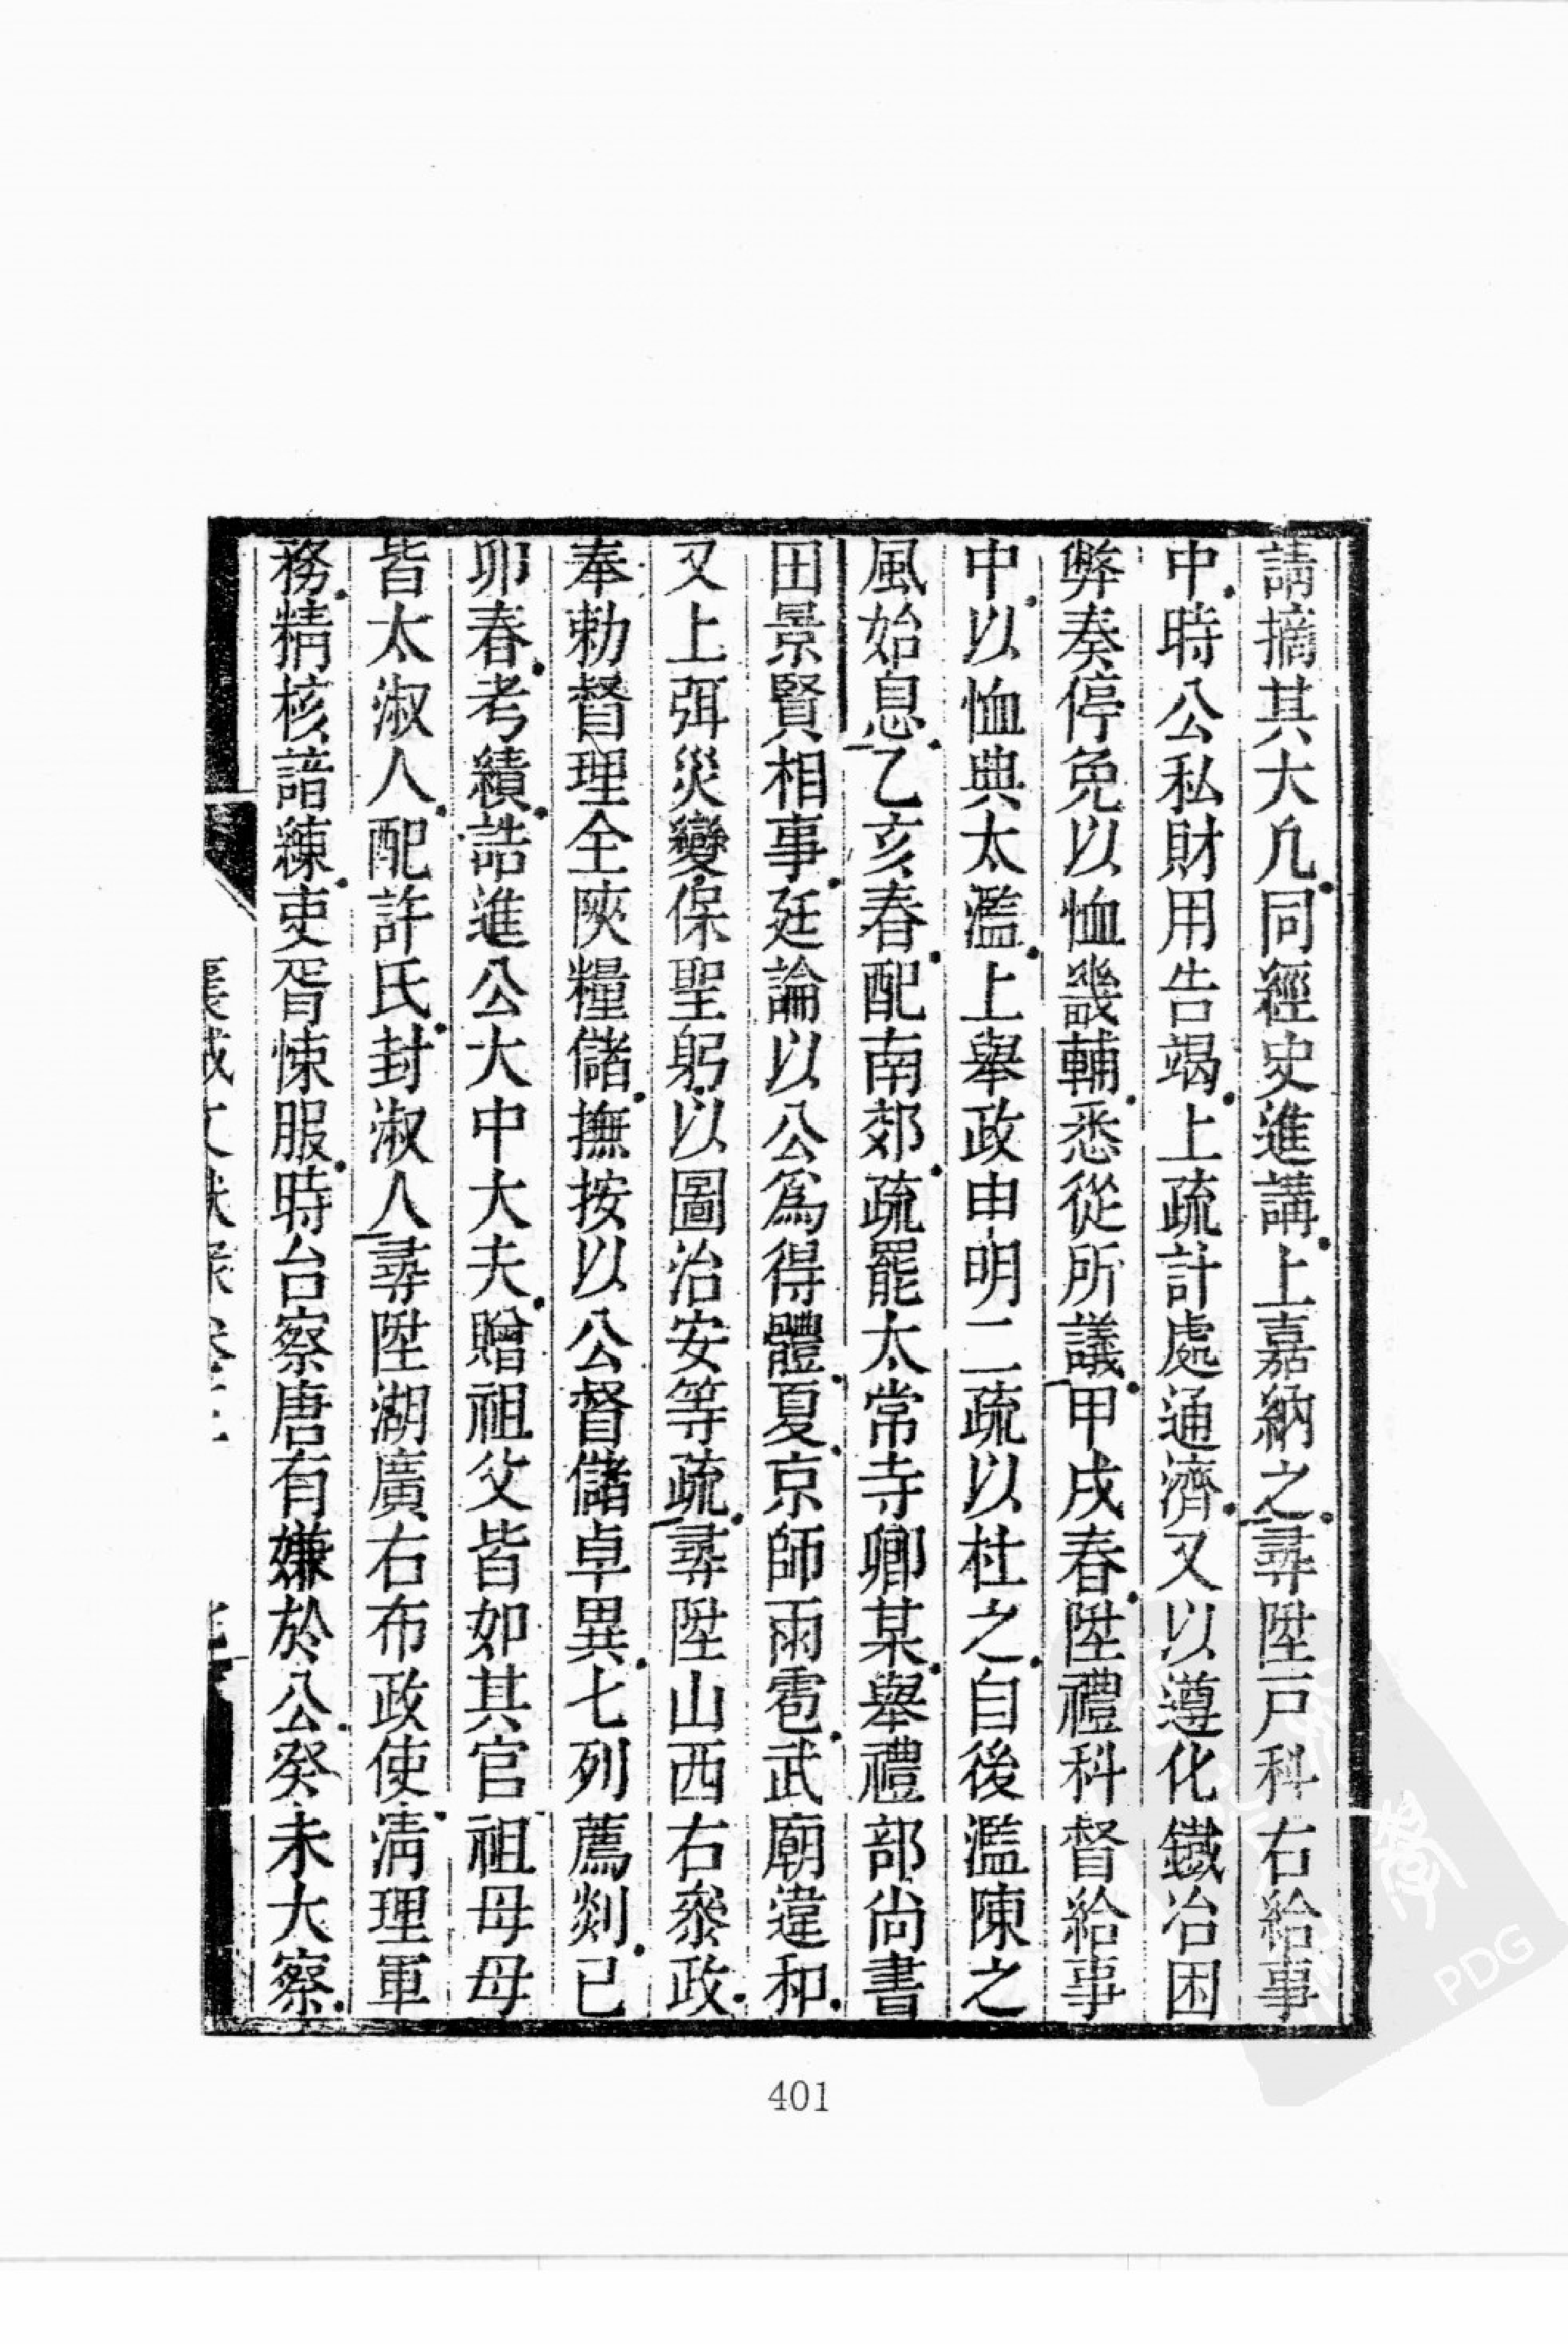 請摘其大凡同經史進講上嘉納之尋陞戸科右給事
中時公私財用告竭上疏計處通濟又以遵化鐵冶困
弊奏停免以恤畿輔悉從所議甲戌春陞禮科督給事
中以恤典太濫上舉政申明二疏以杜之自後濫陳之
風始息乙亥春配南郊疏罷太常寺卿某舉禮部尚書
田景賢相事廷論以公爲得體夏京師雨雹武廟違和
又上弭災變保聖躬以圖治安等疏尋陞山西右叅政
奉勅督理全陝糧儲撫按以公督儲卓異七列薦剡已
卯春考績誥進公大中大夫贈祖父皆如其官祖母母
皆太淑人配許氏封淑人尋陞湖廣右布政使淸理軍
務精核諳練吏胥悚服時台察唐有嫌於公癸未大察
401
PDG